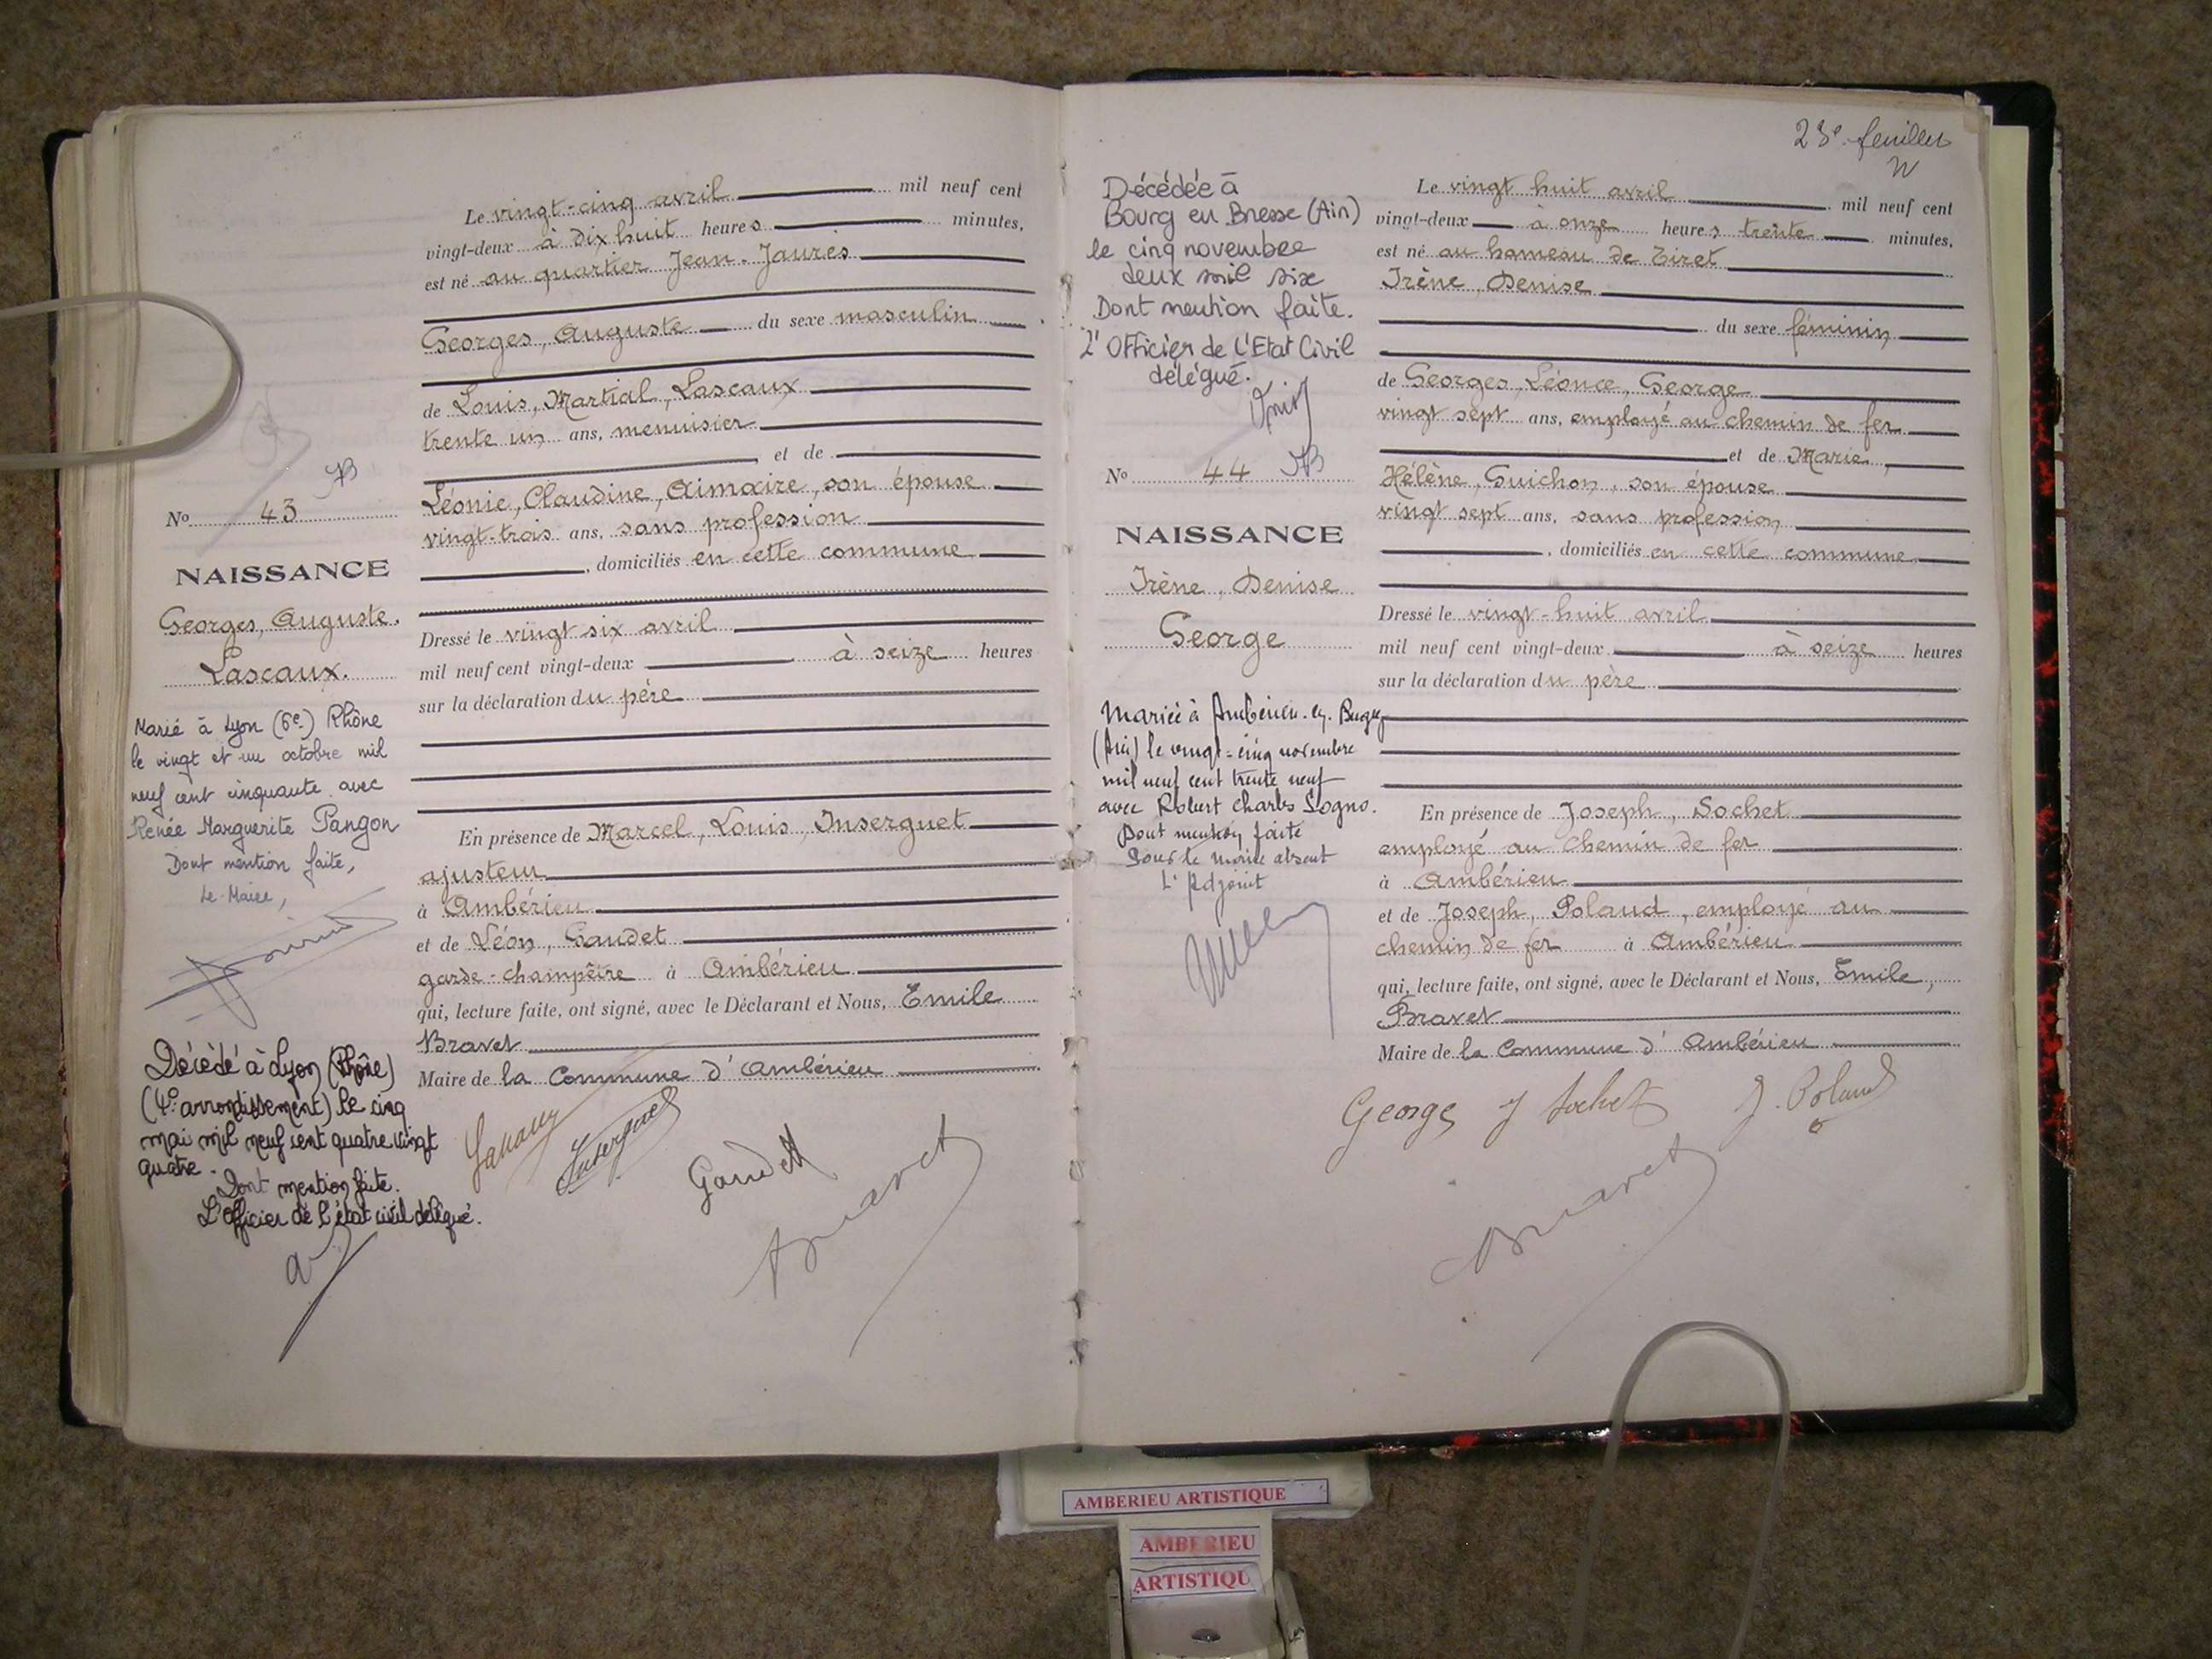 Le vingt-cinq avril mil neuf cent
vingt-deux à dix huit heures minutes,
est né au quartier Jean-Jaurès
Georges, Auguste du sexe masculin
de Louis, Martial, Lascaux
trente un ans, menuisier
et de
Léonie, Claudine, Aimaire, son épouse
vingt-trois ans, sans profession
, domiciliés en cette commune
Dressé le vingt six avril
mil neuf cent vingt-deux à seize heures
sur la déclaration du père
En présence de Marcel, Louis, Inserguet
ajusteur
à Ambérieu
et de Léon, Gaudet
garde-champêtre à Ambérieu
qui, lecture faite, ont signé, avec le Déclarant et Nous, Emile
Bravet
Maire de la Commune d'Ambérieu
Lascaux Inserguet Gaudet Bravet
No 43
NAISSANCE
Georges, Auguste.
Lascaux.
Marié à Lyon (6e) Rhône
le vingt et un octobre mil
neuf cent cinquante avec
Renée Marguerite Pangon
Dont mention faite,
Le Maire,
Décédé à Lyon (Rhône)
(4e arrondissement) le cinq
mai mil neuf cent quatre vingt
quatre.
Dont mention faite.
L'officier de l'état civil délégué.
23e feuillet
Décédée à
Bourg en Bresse (Ain)
le cinq novembre
deux mil six
Dont mention faite.
L'Officier de L'Etat Civil
délégué.
No 44
NAISSANCE
Irène, Denise
George
Mariée à Ambérieu-en-Bugey
(Ain) le vingt-cinq novembre
mil neuf cent trente neuf
avec Robert Charles Sogno.
Dont mention faite
Pour le Maire absent
L'Adjoint
Le vingt huit avril mil neuf cent
vingt-deux à onze heures trente minutes,
est né au hameau de Tiret
Irène, Denise
du sexe féminin
de Georges, Léonce, George
vingt sept ans, employé au chemin de fer
et de Marie,
Hélène, Guichon, son épouse
vingt sept ans, sans profession
, domiciliés en cette commune
Dressé le vingt-huit avril
mil neuf cent vingt-deux à seize heures
sur la déclaration du père
En présence de Joseph, Sochet
employé au chemin de fer
à Ambérieu
et de Joseph, Poland, employé au
chemin de fer à Ambérieu
qui, lecture faite, ont signé, avec le Déclarant et Nous, Emile,
Bravet
Maire de la Commune d'Ambérieu
George J Sochet J. Poland
Bravet
AMBERIEU ARTISTIQUE
AMBERIEU
ARTISTIQU